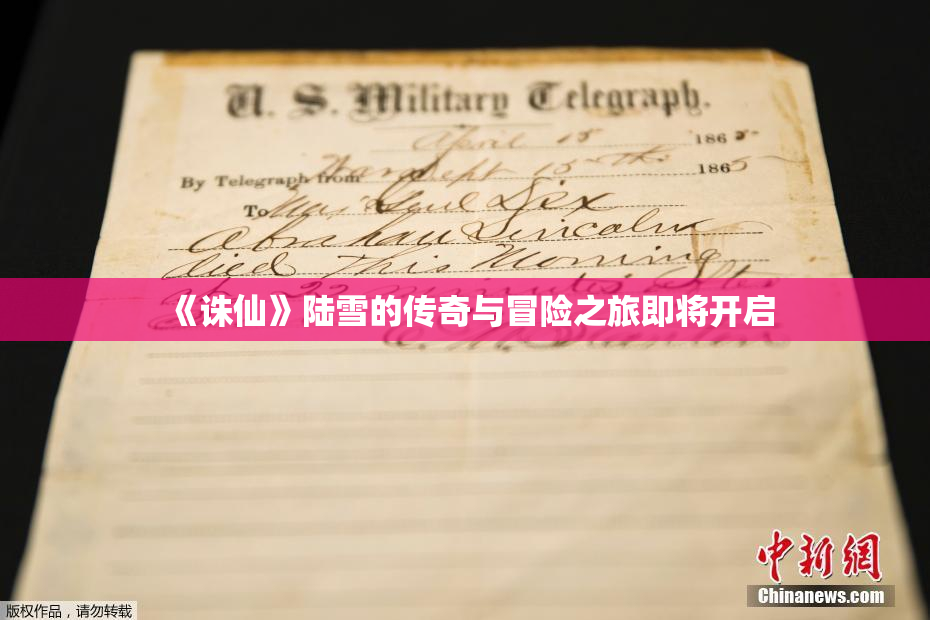 U. S. Military Telegraph.
April 15 1865
By Telegraph from War Dept 15th 1865
To Maj Genl Dix
Abraham Lincoln
died This Morning
22 minutes after
《诛仙》陆雪的传奇与冒险之旅即将开启
E. M. Stanton
中新网
Chinanews.com
版权作品，请勿转载